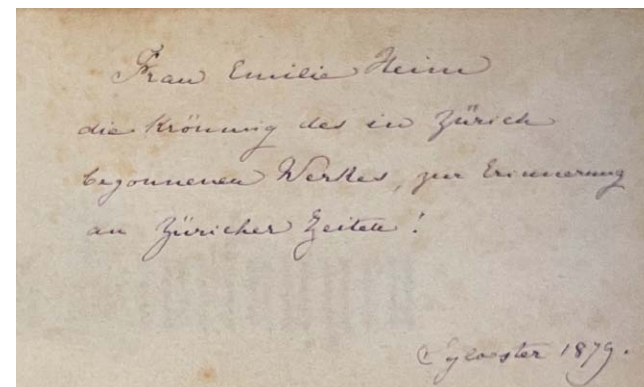 Frau Emilie Heim
die Krönung des in Zürich
begonnenen Werkes, zur Erinnerung
an Züricher Zeiten!
Sylvester 1879.